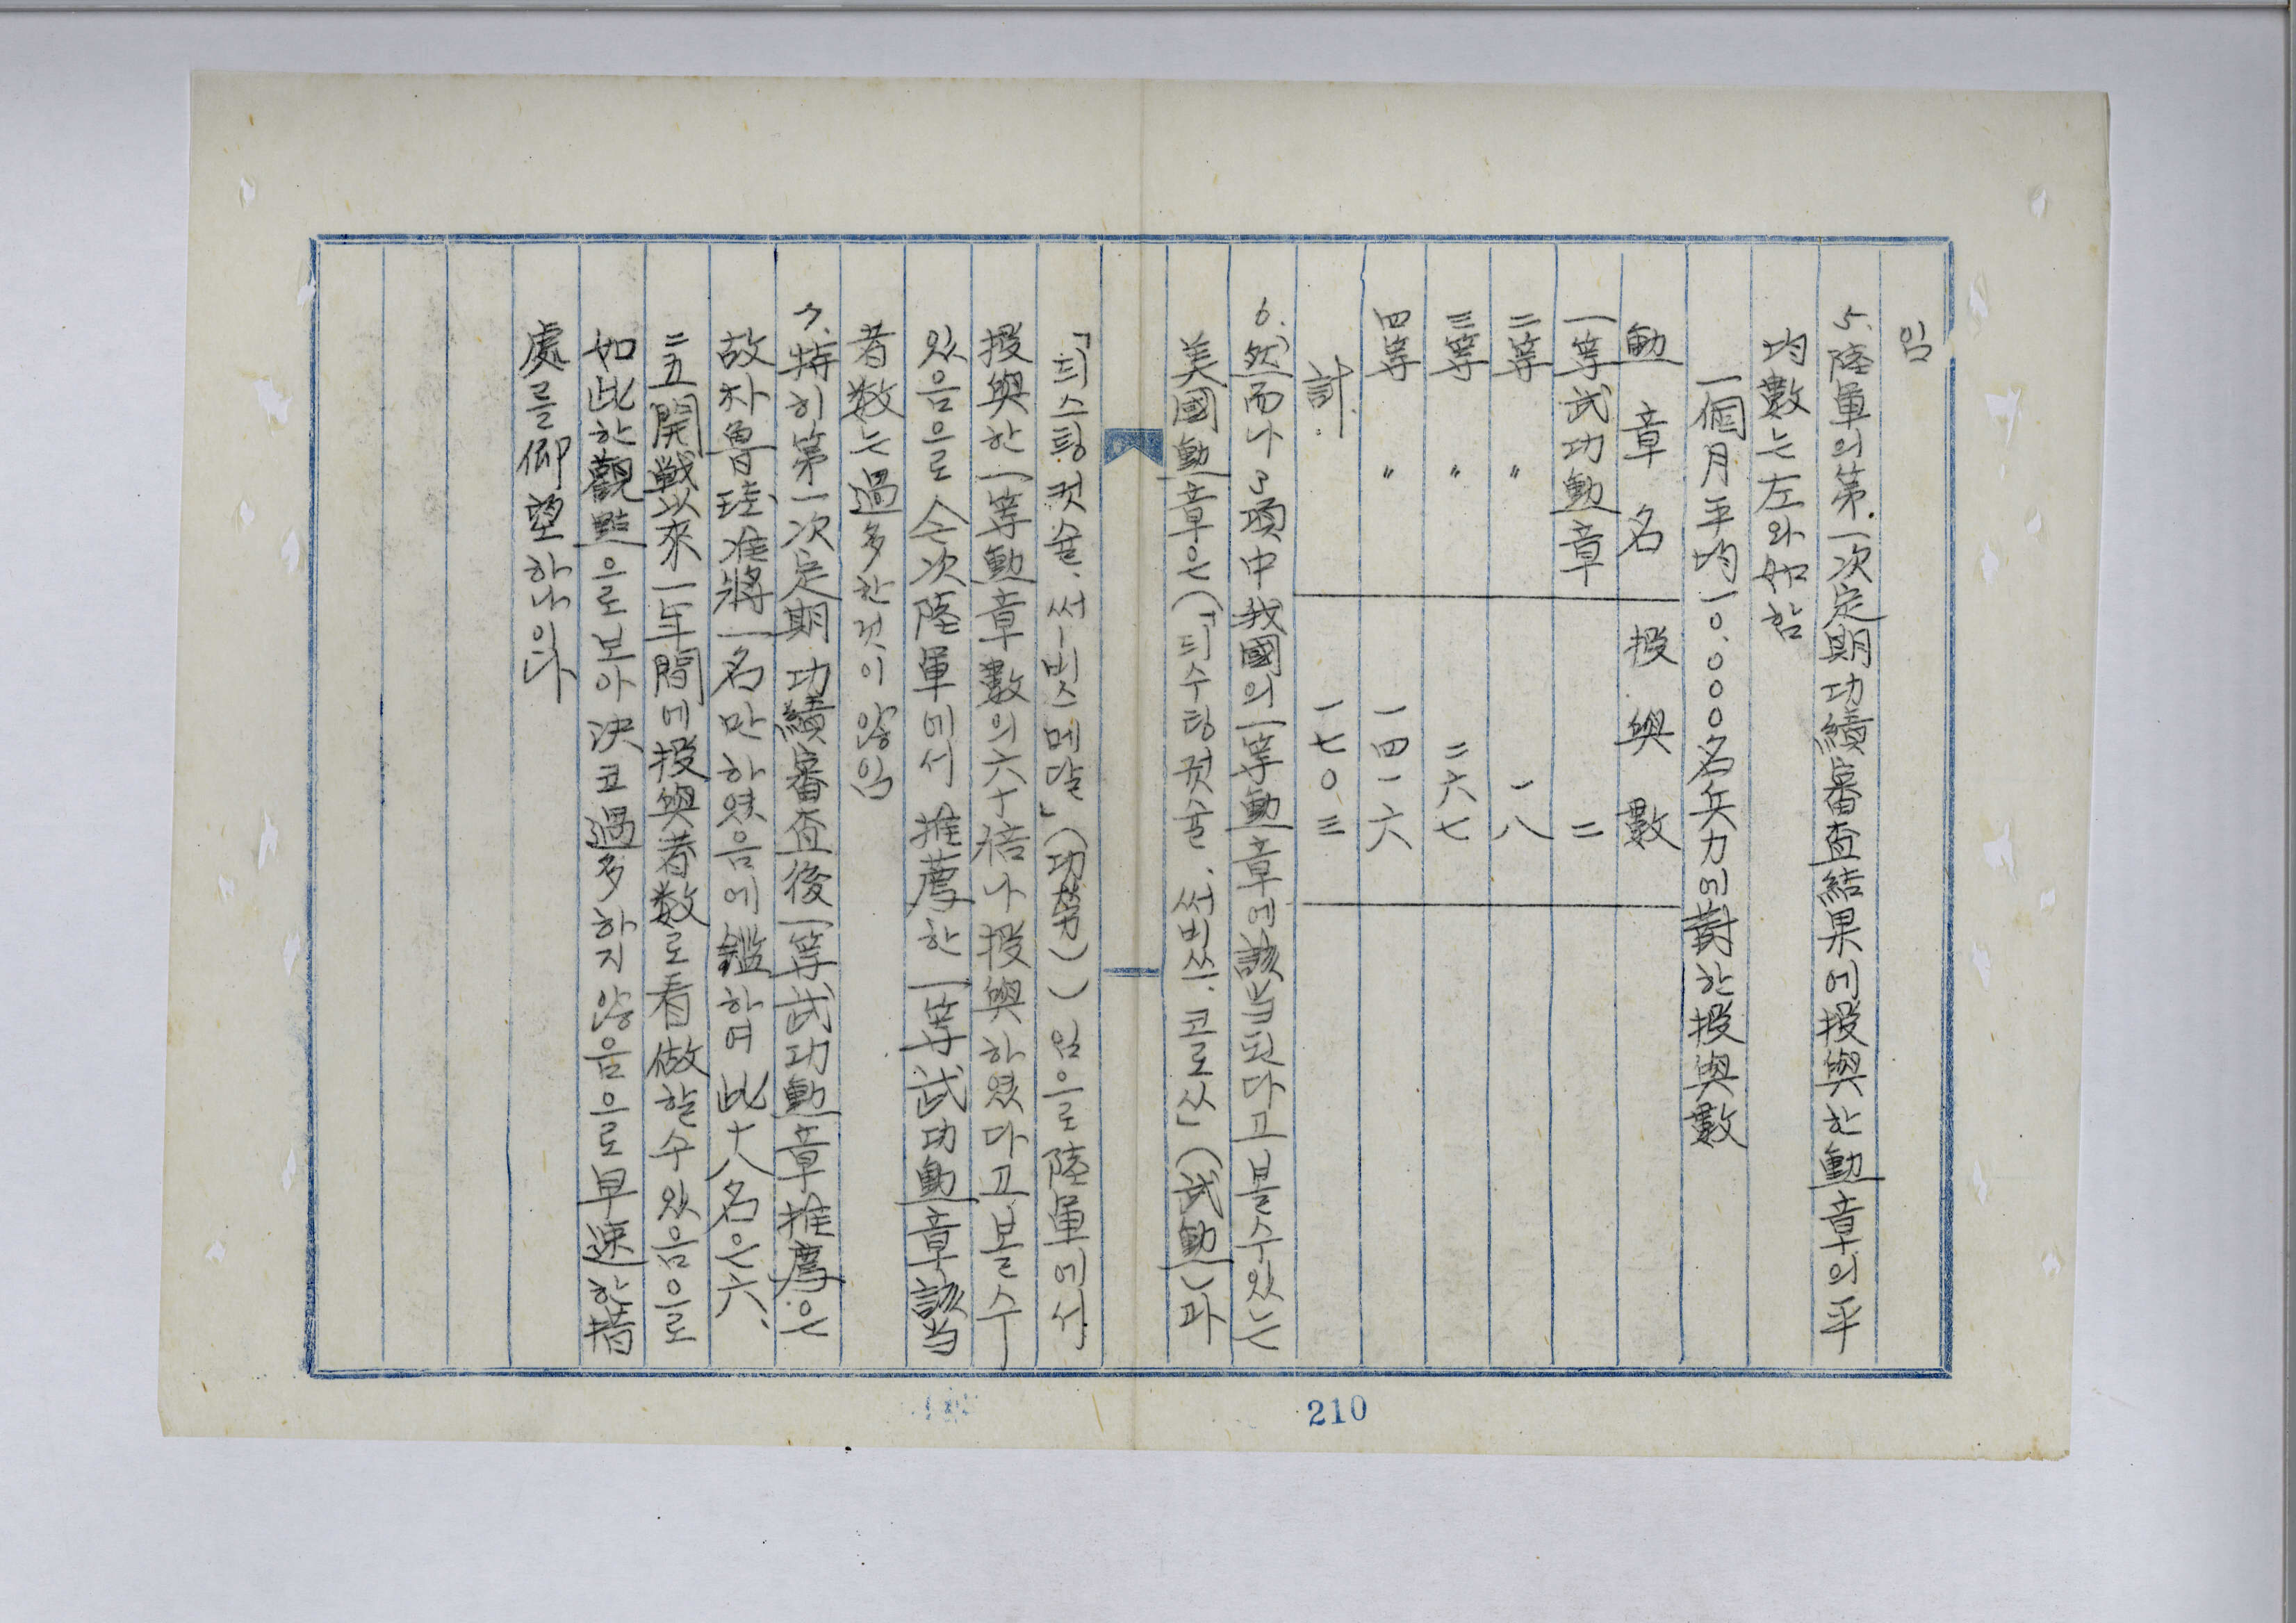 임
5. 陸軍의第一次定期功績審査結果에授與한勳章의平
均數는左와如함
一個月平均一〇.〇〇〇名兵力에對한授與數
勳章名 授與數
一等武功勳章 二
二等 〃 一八
三等 〃 二六七
四等 〃 一四一六
計. 一七〇三
6. 然而나 3項中我國의一等勳章에該当된다고볼수있는
美國勳章은(「듸수팅궛슬.써비쓰.코로쓰」(武勳)과
「듸스팅컷슬.써-비스메달」(功勞))임으로陸軍에서
授與한一等勳章數의六十倍나授與하였다고볼수
있음으로今次陸軍에서推薦한一等武功勳章該当
者数는過多한것이않임
7. 特히第一次定期功績審査後一等武功勳章推薦은
故朴魯珪准將一名만하였음에鑑하여此十八名은六.
二五開戰以來一年間에授與者数로看做할수있음으로
如此한觀點으로보아決코過多하지않음으로早速한措
處를仰望하나이다
210